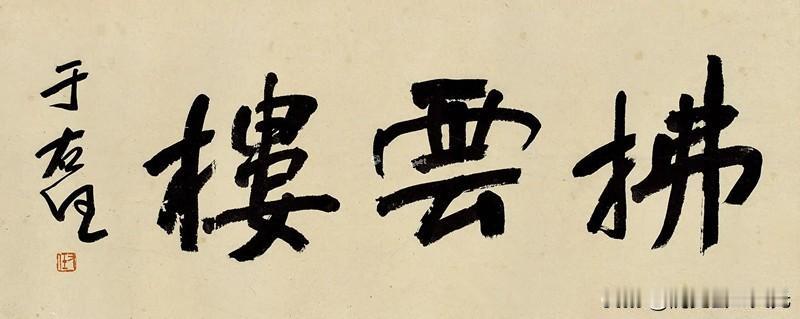 拂雲樓
于右任